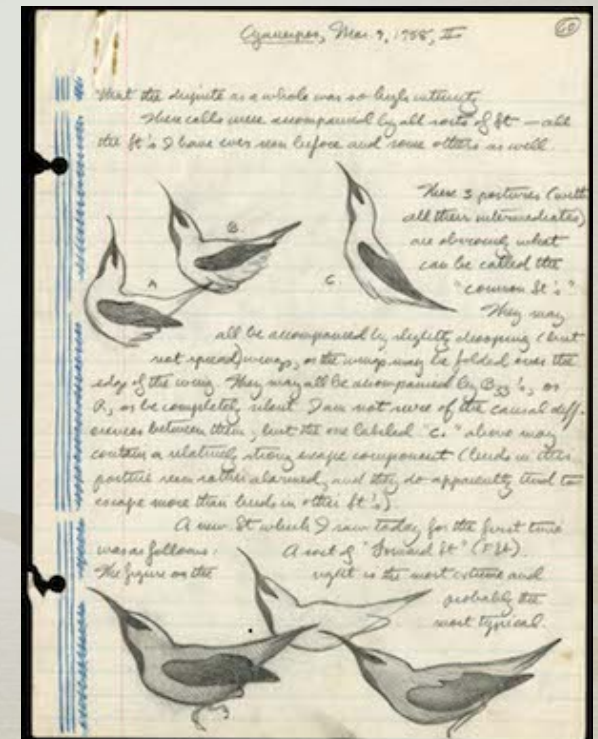 60
Cyanerpes, Mar. 9, 1958, II
that the dispute as a whole was so high intensity
These calls were accompanied by all sorts of St — all
the St's I have ever seen before and some others as well.
These 3 postures (with
all their intermediates)
are obviously what
can be called the
"common St's"
They may
B.
A
C.
all be accompanied by slightly drooping (but
not spread) wings, or the wings may be folded over the
edge of the wing. They may all be accompanied by B33's, or
R, or be completely silent. I am not sure of the causal diff-
erences between them, but the one labeled "C." above may
contain a relatively strong escape component (birds in this
posture seem rather alarmed, and they do apparently tend to
escape more than birds in other St's).
A new St which I saw today for the first time
was as follows: A sort of "Forward St" (FSt).
The figure on the right is the most extreme and
probably the
most typical.